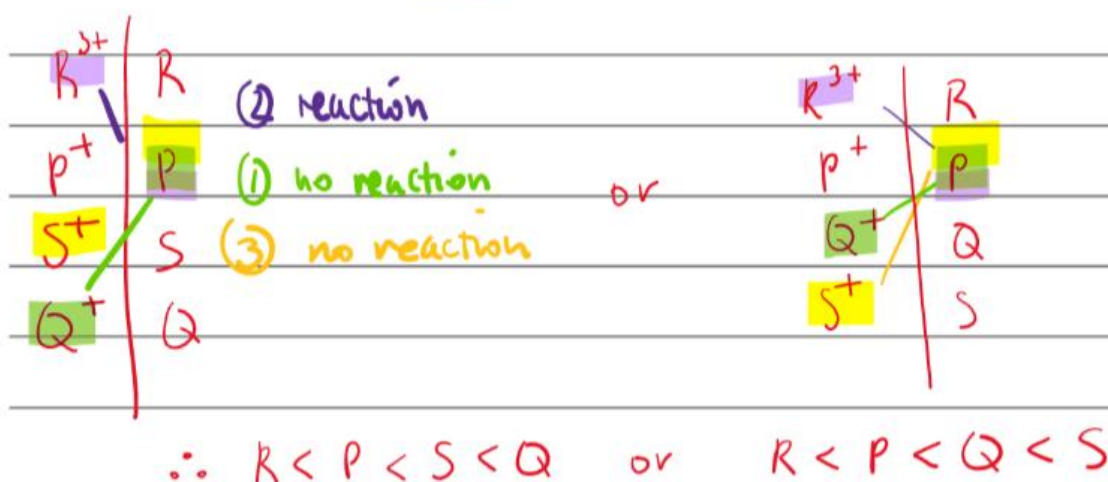 R³⁺ | R ② reaction
P⁺ | P ① no reaction
S⁺ | S ③ no reaction
Q⁺ | Q
or
R³⁺ | R
P⁺ | P
Q⁺ | Q
S⁺ | S
∴ R < P < S < Q or R < P < Q < S